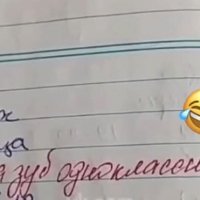 ж
ца
зуб одноклассн